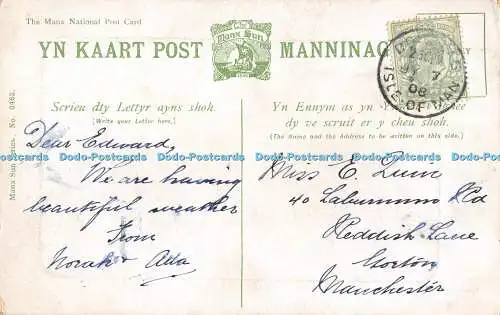 The Manx National Post Card
YN KAART POST
Manx Sun
MANNINAGH
Scrieu dty Lettyr ayns shoh.
(Write your Letter here.)
Yn Ennym as yn
dy ve scruit er y cheu shoh.
(The Name and the Address to be written on this side.)
Manx Sun Series. No. 0463.
7
08
ISLE OF MAN
Dear Edward,
We are having
beautiful weather
From
Norah & Ada
Miss E. Quin
40 Laburnum Rd
Reddish Lane
Gorton
Manchester
Dodo-Postcards Dodo-Postcards Dodo-Postcards Dodo-Postcards Dodo-Postcards Dodo-Postcards